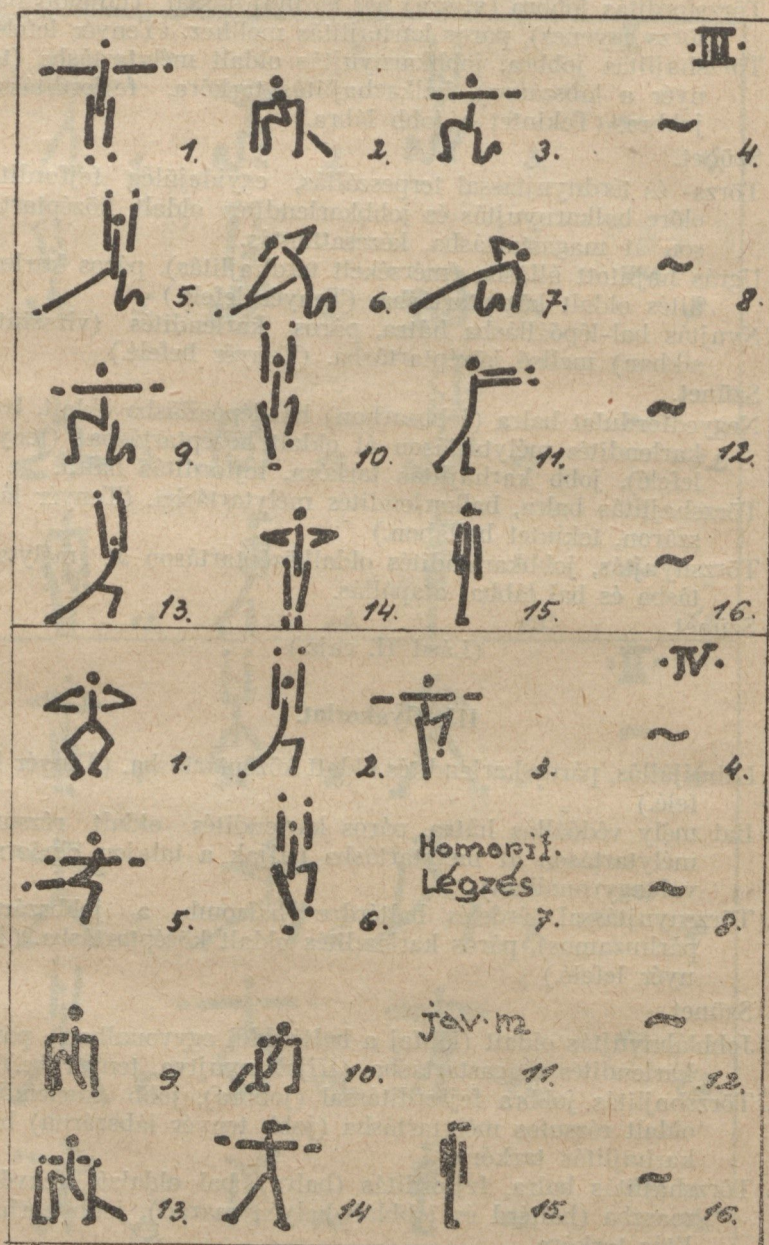 ·III·
1. 2. 3. ~ 4.
5. 6. 7. ~ 8.
9. 10. 11. ~ 12.
13. 14. 15. ~ 16.
·IV·
1. 2. 3. ~ 4.
Homorít.
Légzés
5. 6. 7. ~ 8.
jav. m
9. 10. 11. ~ 12.
13. 14 15. ~ 16.